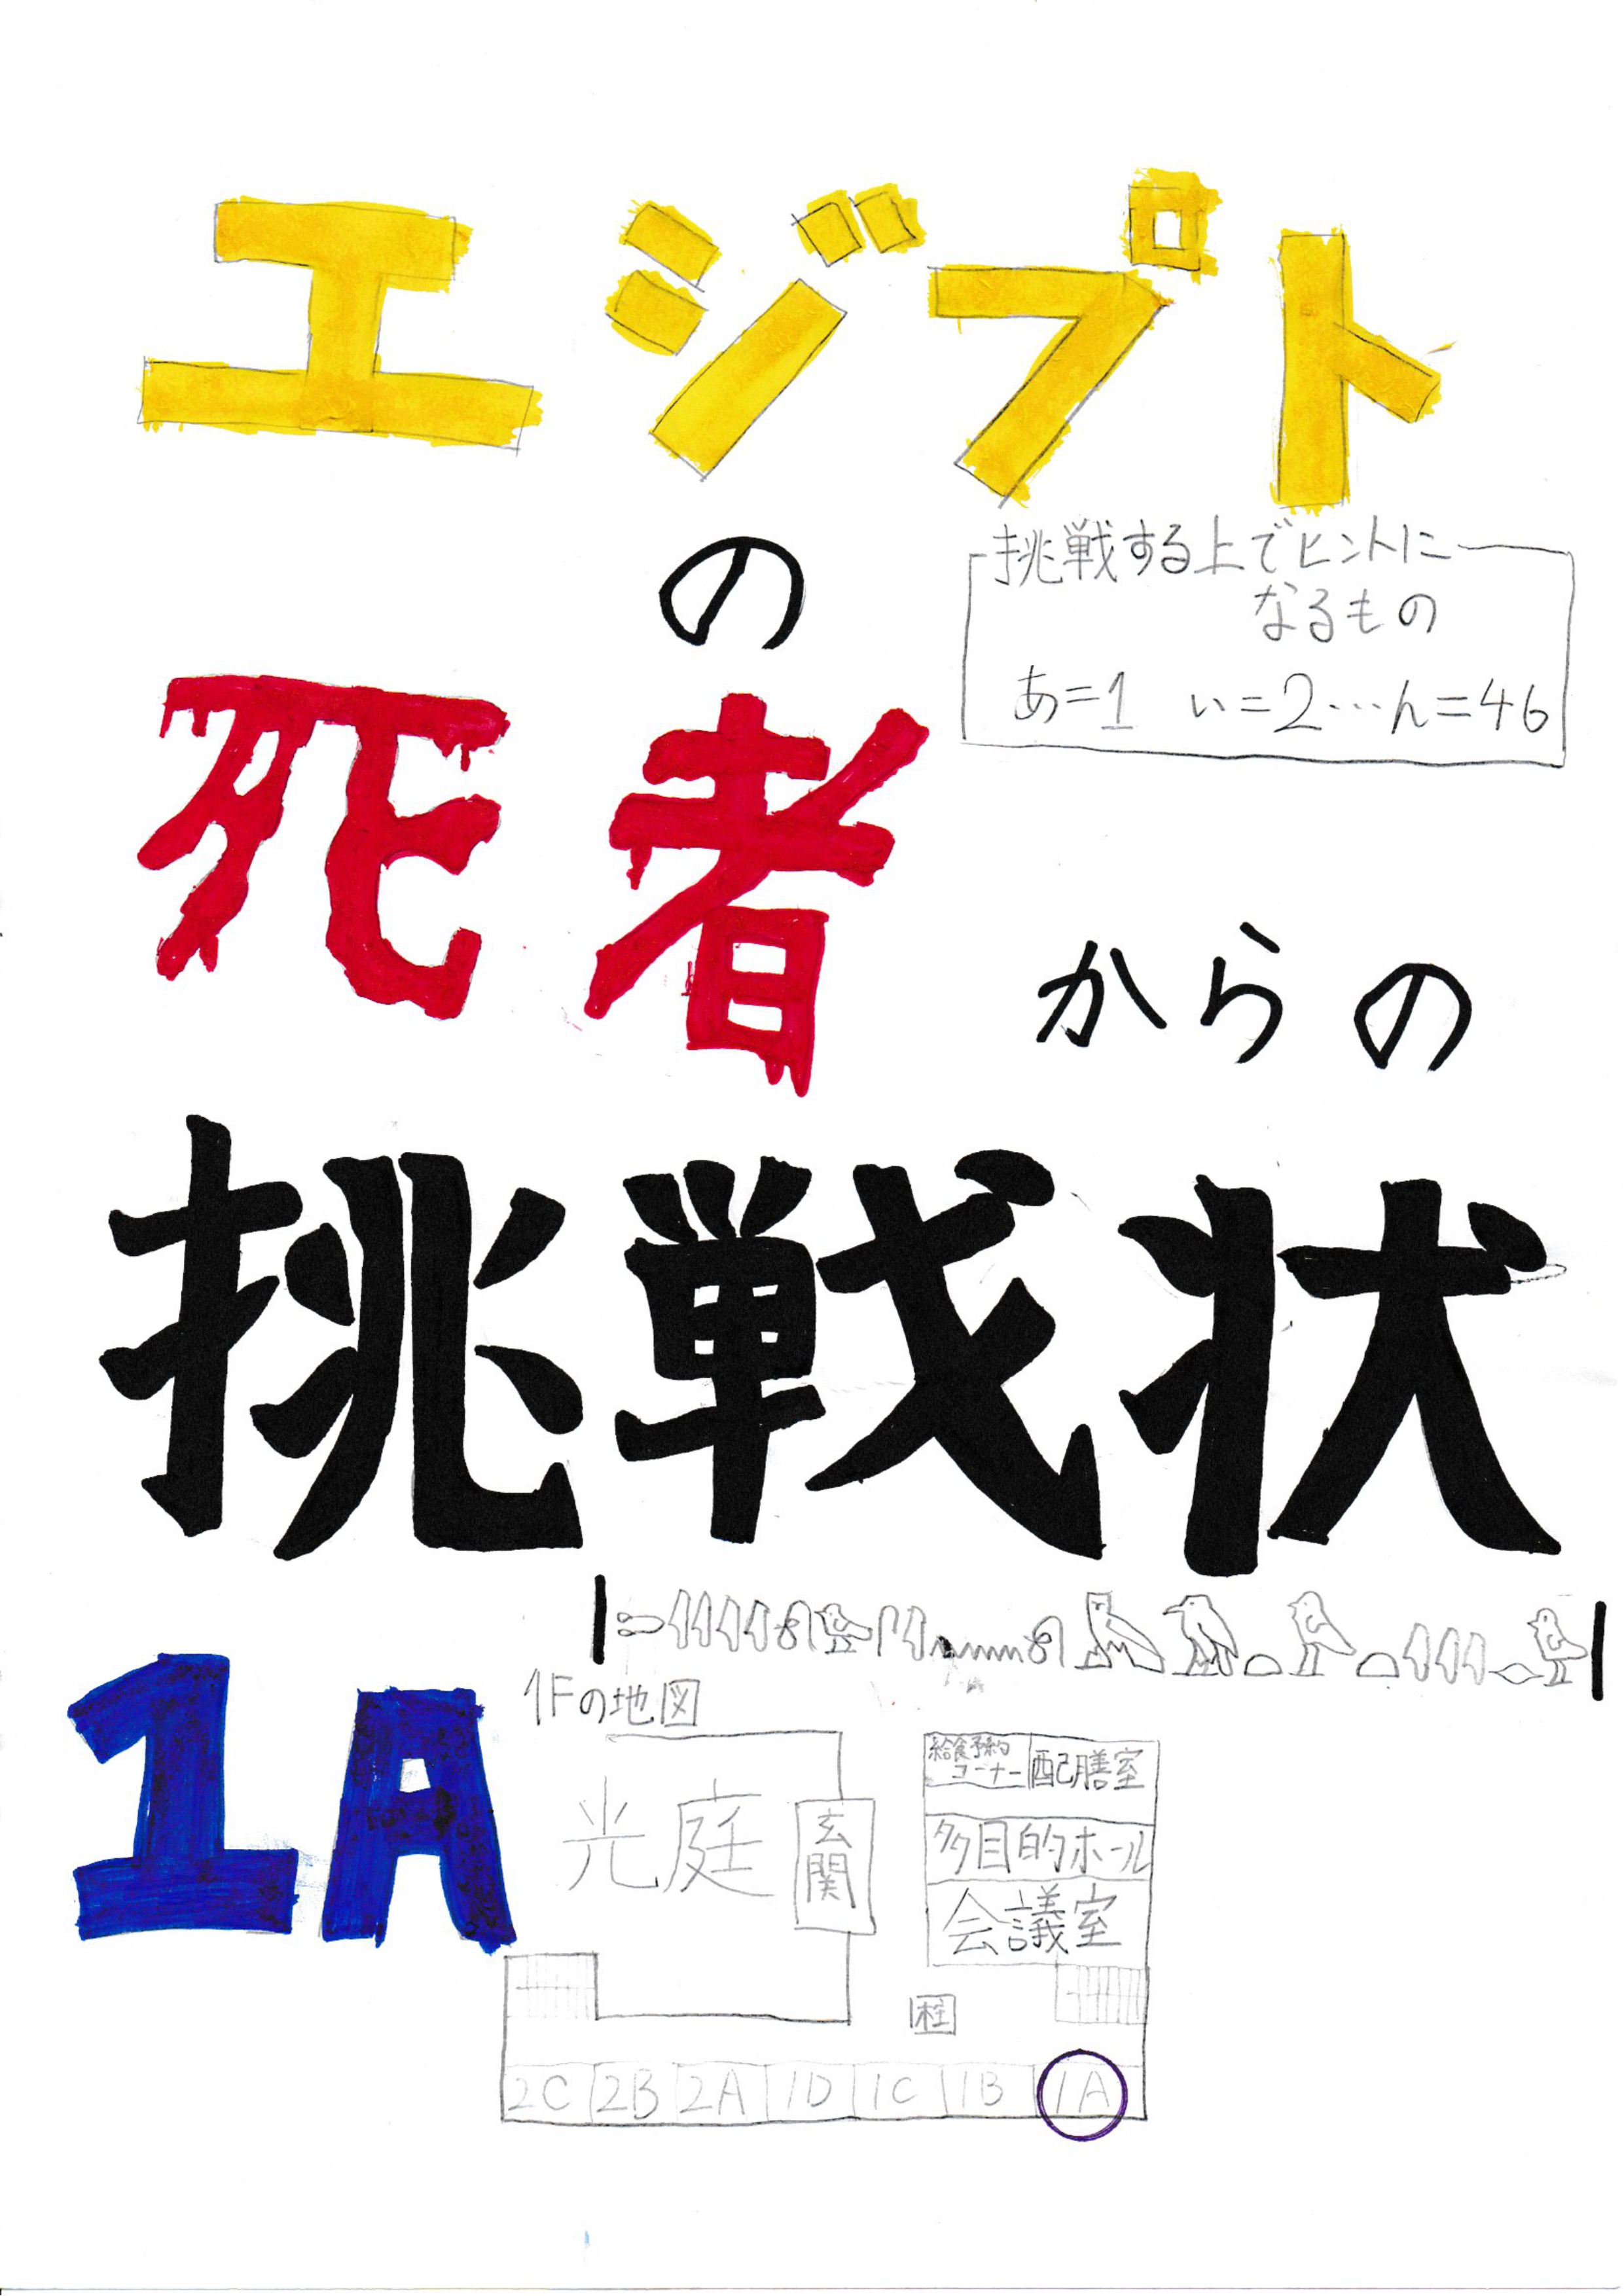 エジプト
の
挑戦する上でヒントに
なるもの
あ=1 い=2…ん=46
死者からの
挑戦状
1A
1Fの地図
光庭
玄関
給食予約
コーナー
配膳室
多目的ホール
会議室
柱
2C 2B 2A 1D 1C 1B 1A